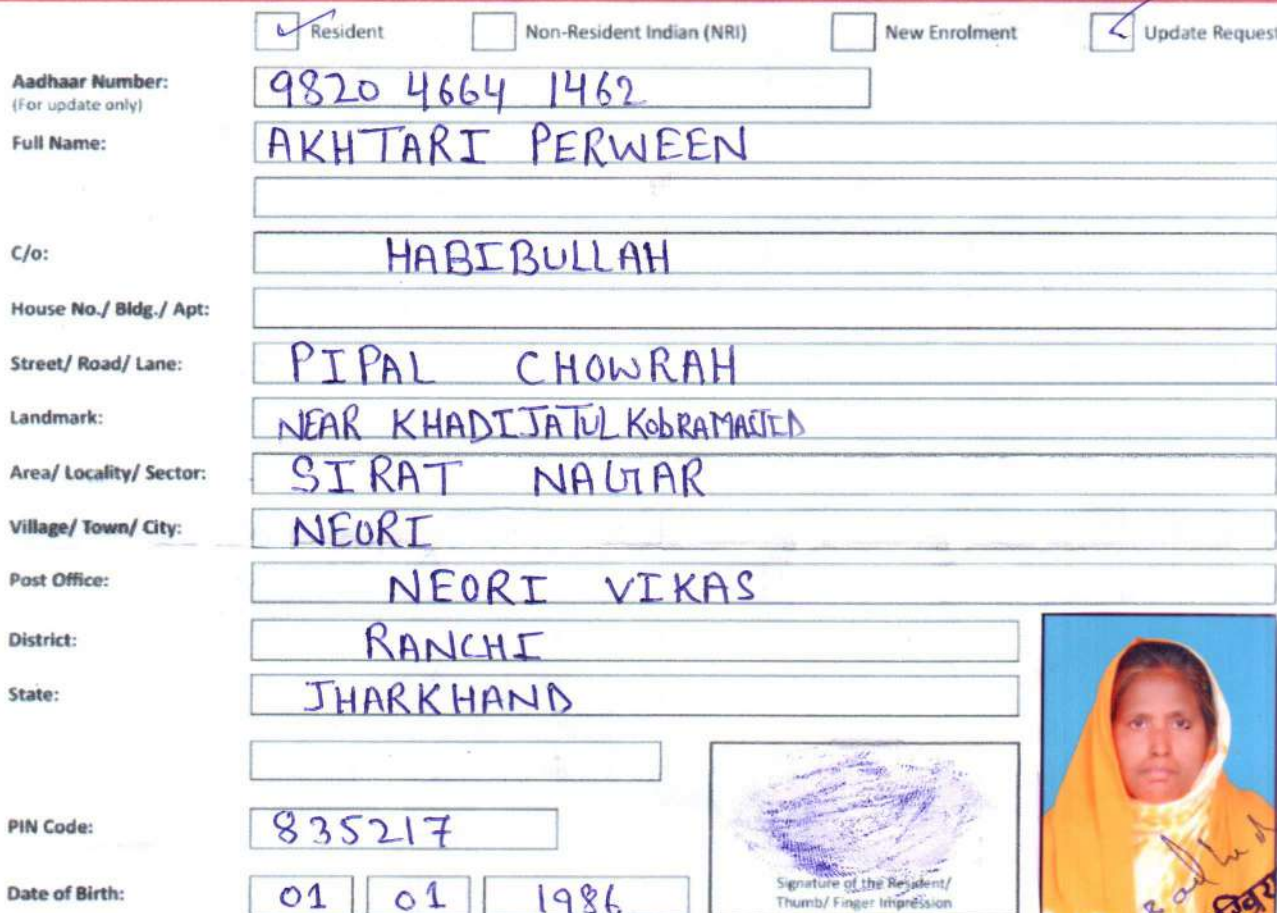 Resident Non-Resident Indian (NRI) New Enrolment Update Request
Aadhaar Number: 9820 4664 1462
(For update only)
Full Name: AKHTARI PERWEEN
C/o: HABIBULLAH
House No./ Bldg./ Apt:
Street/ Road/ Lane: PIPAL CHOWRAH
Landmark: NEAR KHADIJATUL KobRAMASJID
Area/ Locality/ Sector: SIRAT NAGAR
Village/ Town/ City: NEORI
Post Office: NEORI VIKAS
District: RANCHI
State: JHARKHAND
PIN Code: 835217
Date of Birth: 01 01 1986
Signature of the Resident/
Thumb/ Finger Impression